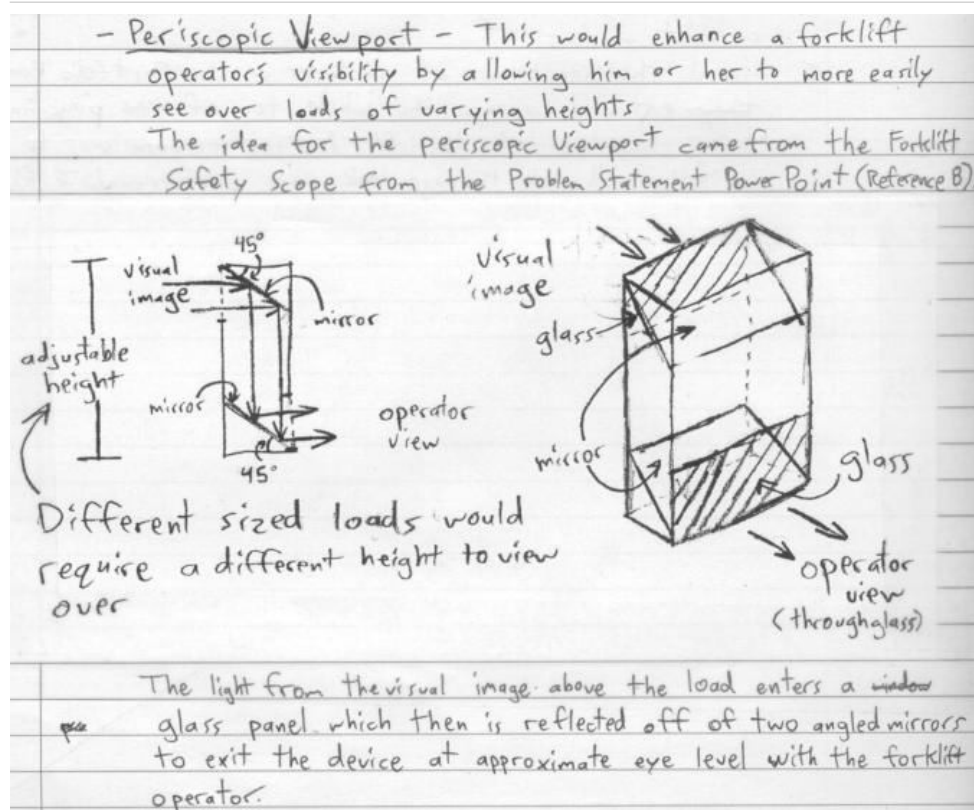 - Periscopic Viewport - This would enhance a forklift
operator's visibility by allowing him or her to more easily
see over loads of varying heights
The idea for the periscopic Viewport came from the Forklift
Safety Scope from the Problem Statement PowerPoint (Reference B)
45°
visual
image
mirror
adjustable
height
mirror
operator
view
45°
Different sized loads would
require a different height to view
over
visual
image
glass
mirror
glass
operator
view
(through glass)
The light from the visual image above the load enters a window
glass panel which then is reflected off of two angled mirrors
to exit the device at approximate eye level with the forklift
operator.